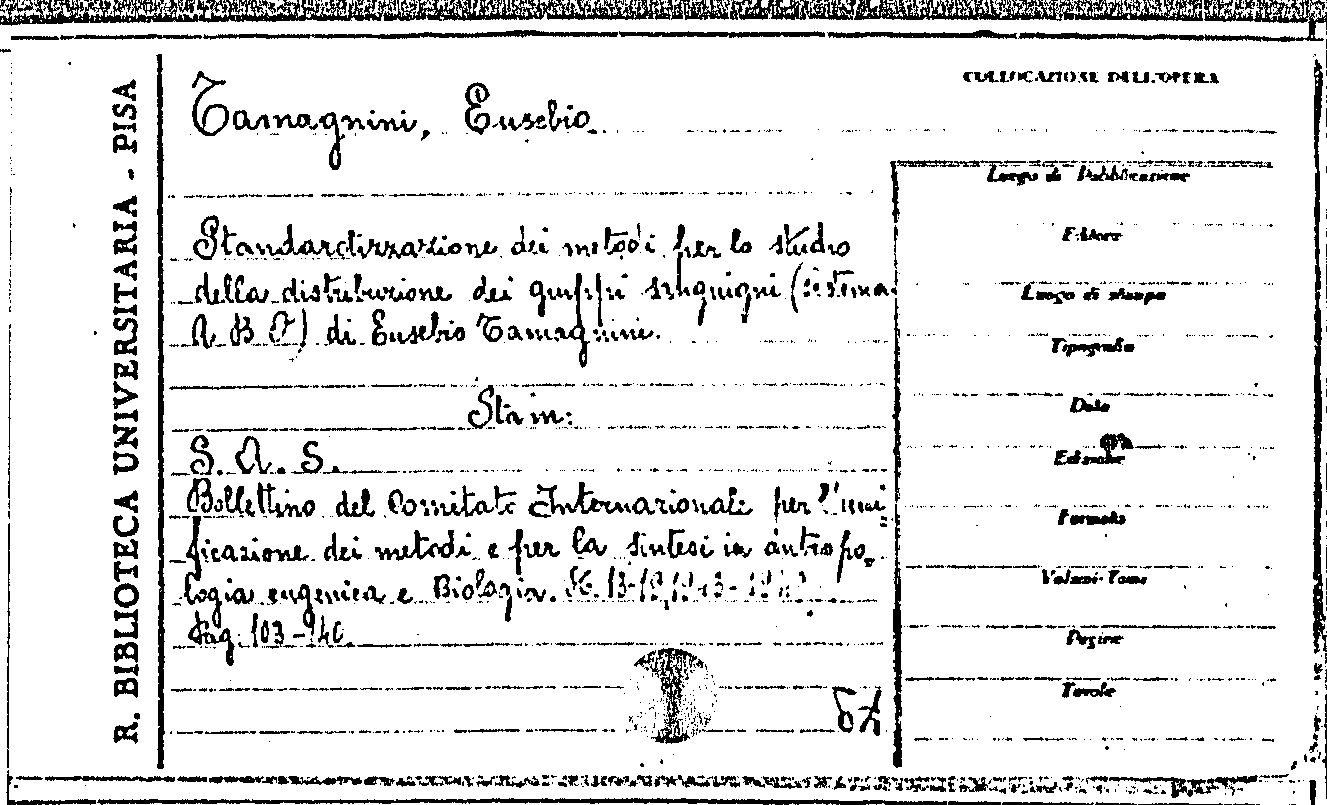 R. BIBLIOTECA UNIVERSITARIA - PISA
COLLOCAZIONE DELL'OPERA
Tamagnini, Eusebio
Standardizzazione dei metodi per lo studio
della distribuzione dei gruppi sanguigni (sistema
A B O) di Eusebio Tamagnini.
Sta in:
S. A. S.
Bollettino del Comitato Internazionale per l'uni
ficazione dei metodi e per la sintesi in antropo-
logia eugenica e Biologia.
Pag. 103-140.
Luogo di Pubblicazione
Editore
Luogo di stampa
Tipografia
Data
Edizione
Formato
Volumi-Tomi
Pagine
Tavole